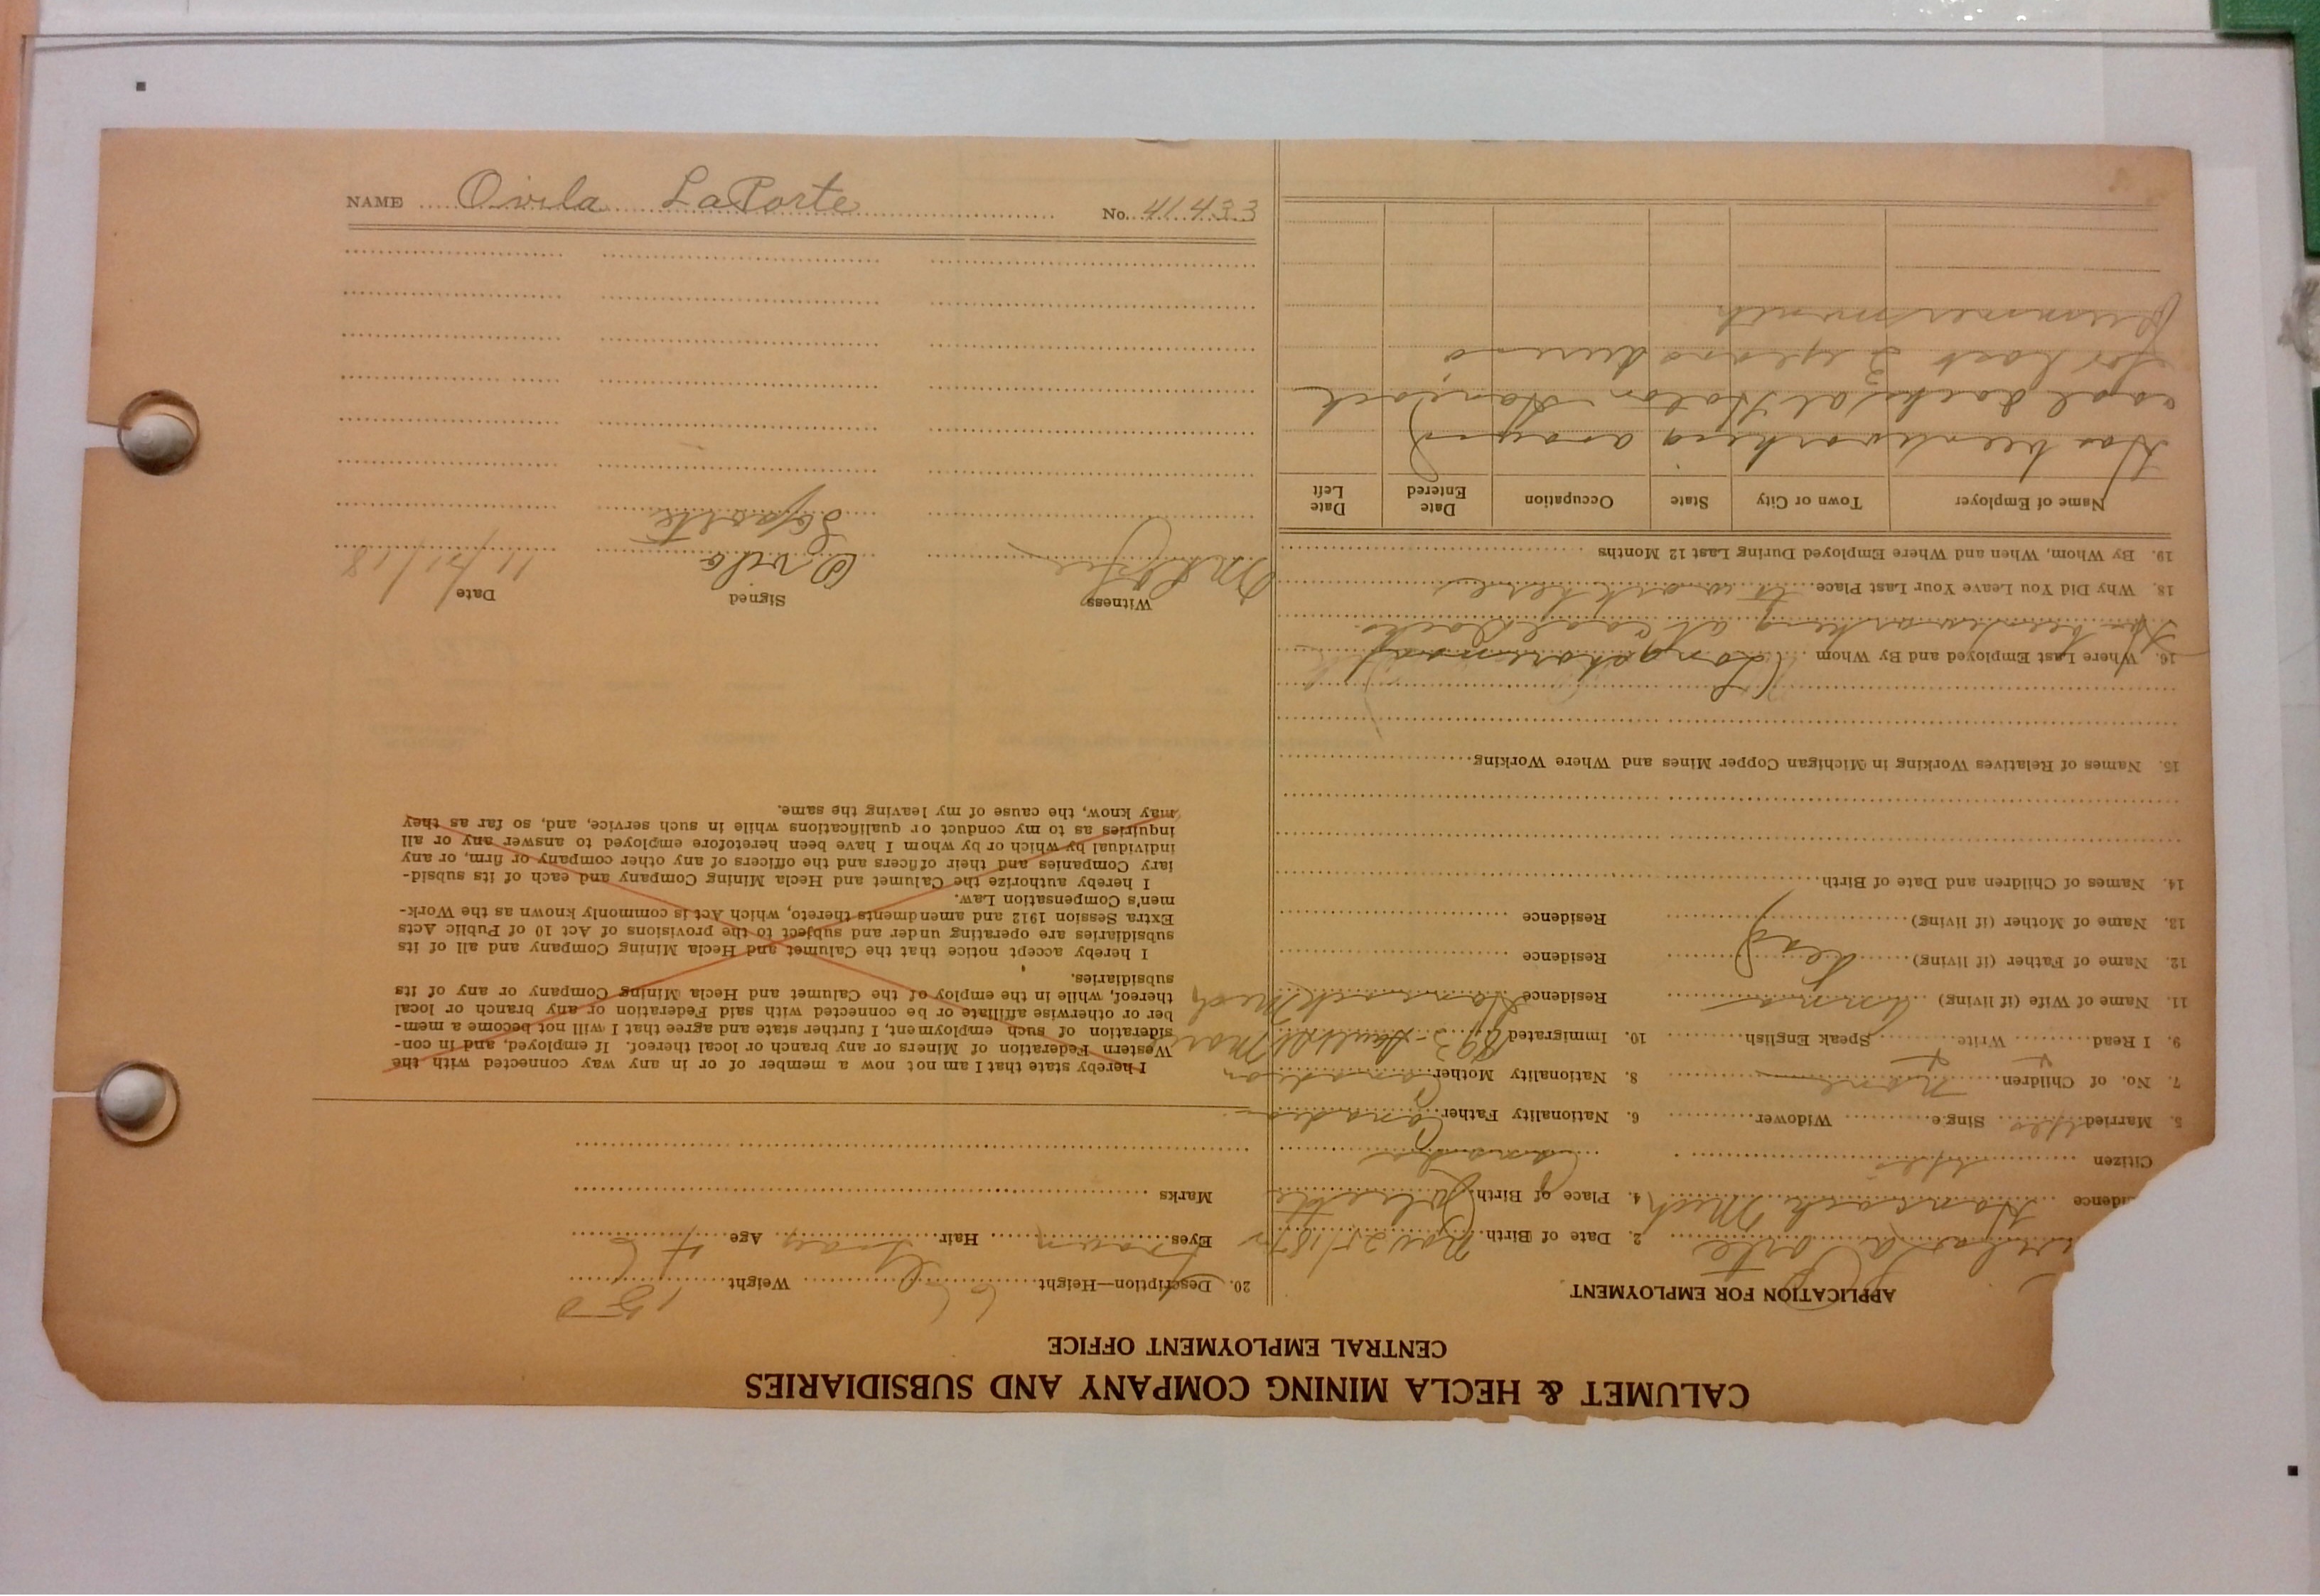 NAME Ovila LaPorte No. 41433
CALUMET & HECLA MINING COMPANY AND SUBSIDIARIES
CENTRAL EMPLOYMENT OFFICE
APPLICATION FOR EMPLOYMENT
2. Date of Birth Nov 25/1872
idence Hancock Mich 4. Place of Birth
Citizen Canada
5. Married Yes Sing e Widower 6. Nationality Father Canadian
7. No. of Children none 8. Nationality Mother Canadian
9. I Read Write Speak English 10. Immigrated 1893
11. Name of Wife (if living) Anna Residence Hancock Mich
12. Name of Father (if living) Dead Residence
13. Name of Mother (if living) Residence
14. Names of Children and Date of Birth
15. Names of Relatives Working in Michigan Copper Mines and Where Working
16. Where Last Employed and By Whom (Longshoreman)
Has been working at coal docks
18. Why Did You Leave Your Last Place. to work here
19. By Whom, When and Where Employed During Last 12 Months
Name of Employer Town or City State Occupation Date Entered Date Left
Has been working around
coal docks at Hancock
for last 3 years during
summer month
20. Description—Height 6 Weight 150
Eyes Brown Hair Gray Age 46
Marks
I hereby state that I am not now a member of or in any way connected with the
Western Federation of Miners or any branch or local thereof. If employed, and in con-
sideration of such employment, I further state and agree that I will not become a mem-
ber or otherwise affiliate or be connected with said Federation or any branch or local
thereof, while in the employ of the Calumet and Hecla Mining Company or any of its
subsidiaries.
I hereby accept notice that the Calumet and Hecla Mining Company and all of its
subsidiaries are operating under and subject to the provisions of Act 10 of Public Acts
Extra Session 1912 and amendments thereto, which Act is commonly known as the Work-
men's Compensation Law.
I hereby authorize the Calumet and Hecla Mining Company and each of its subsid-
iary Companies and their officers and the officers of any other company or firm, or any
individual by which or by whom I have been heretofore employed to answer any or all
inquiries as to my conduct or qualifications while in such service, and, so far as they
may know, the cause of my leaving the same.
Witness Signed Date
Ovila 11/21/18
Laporte